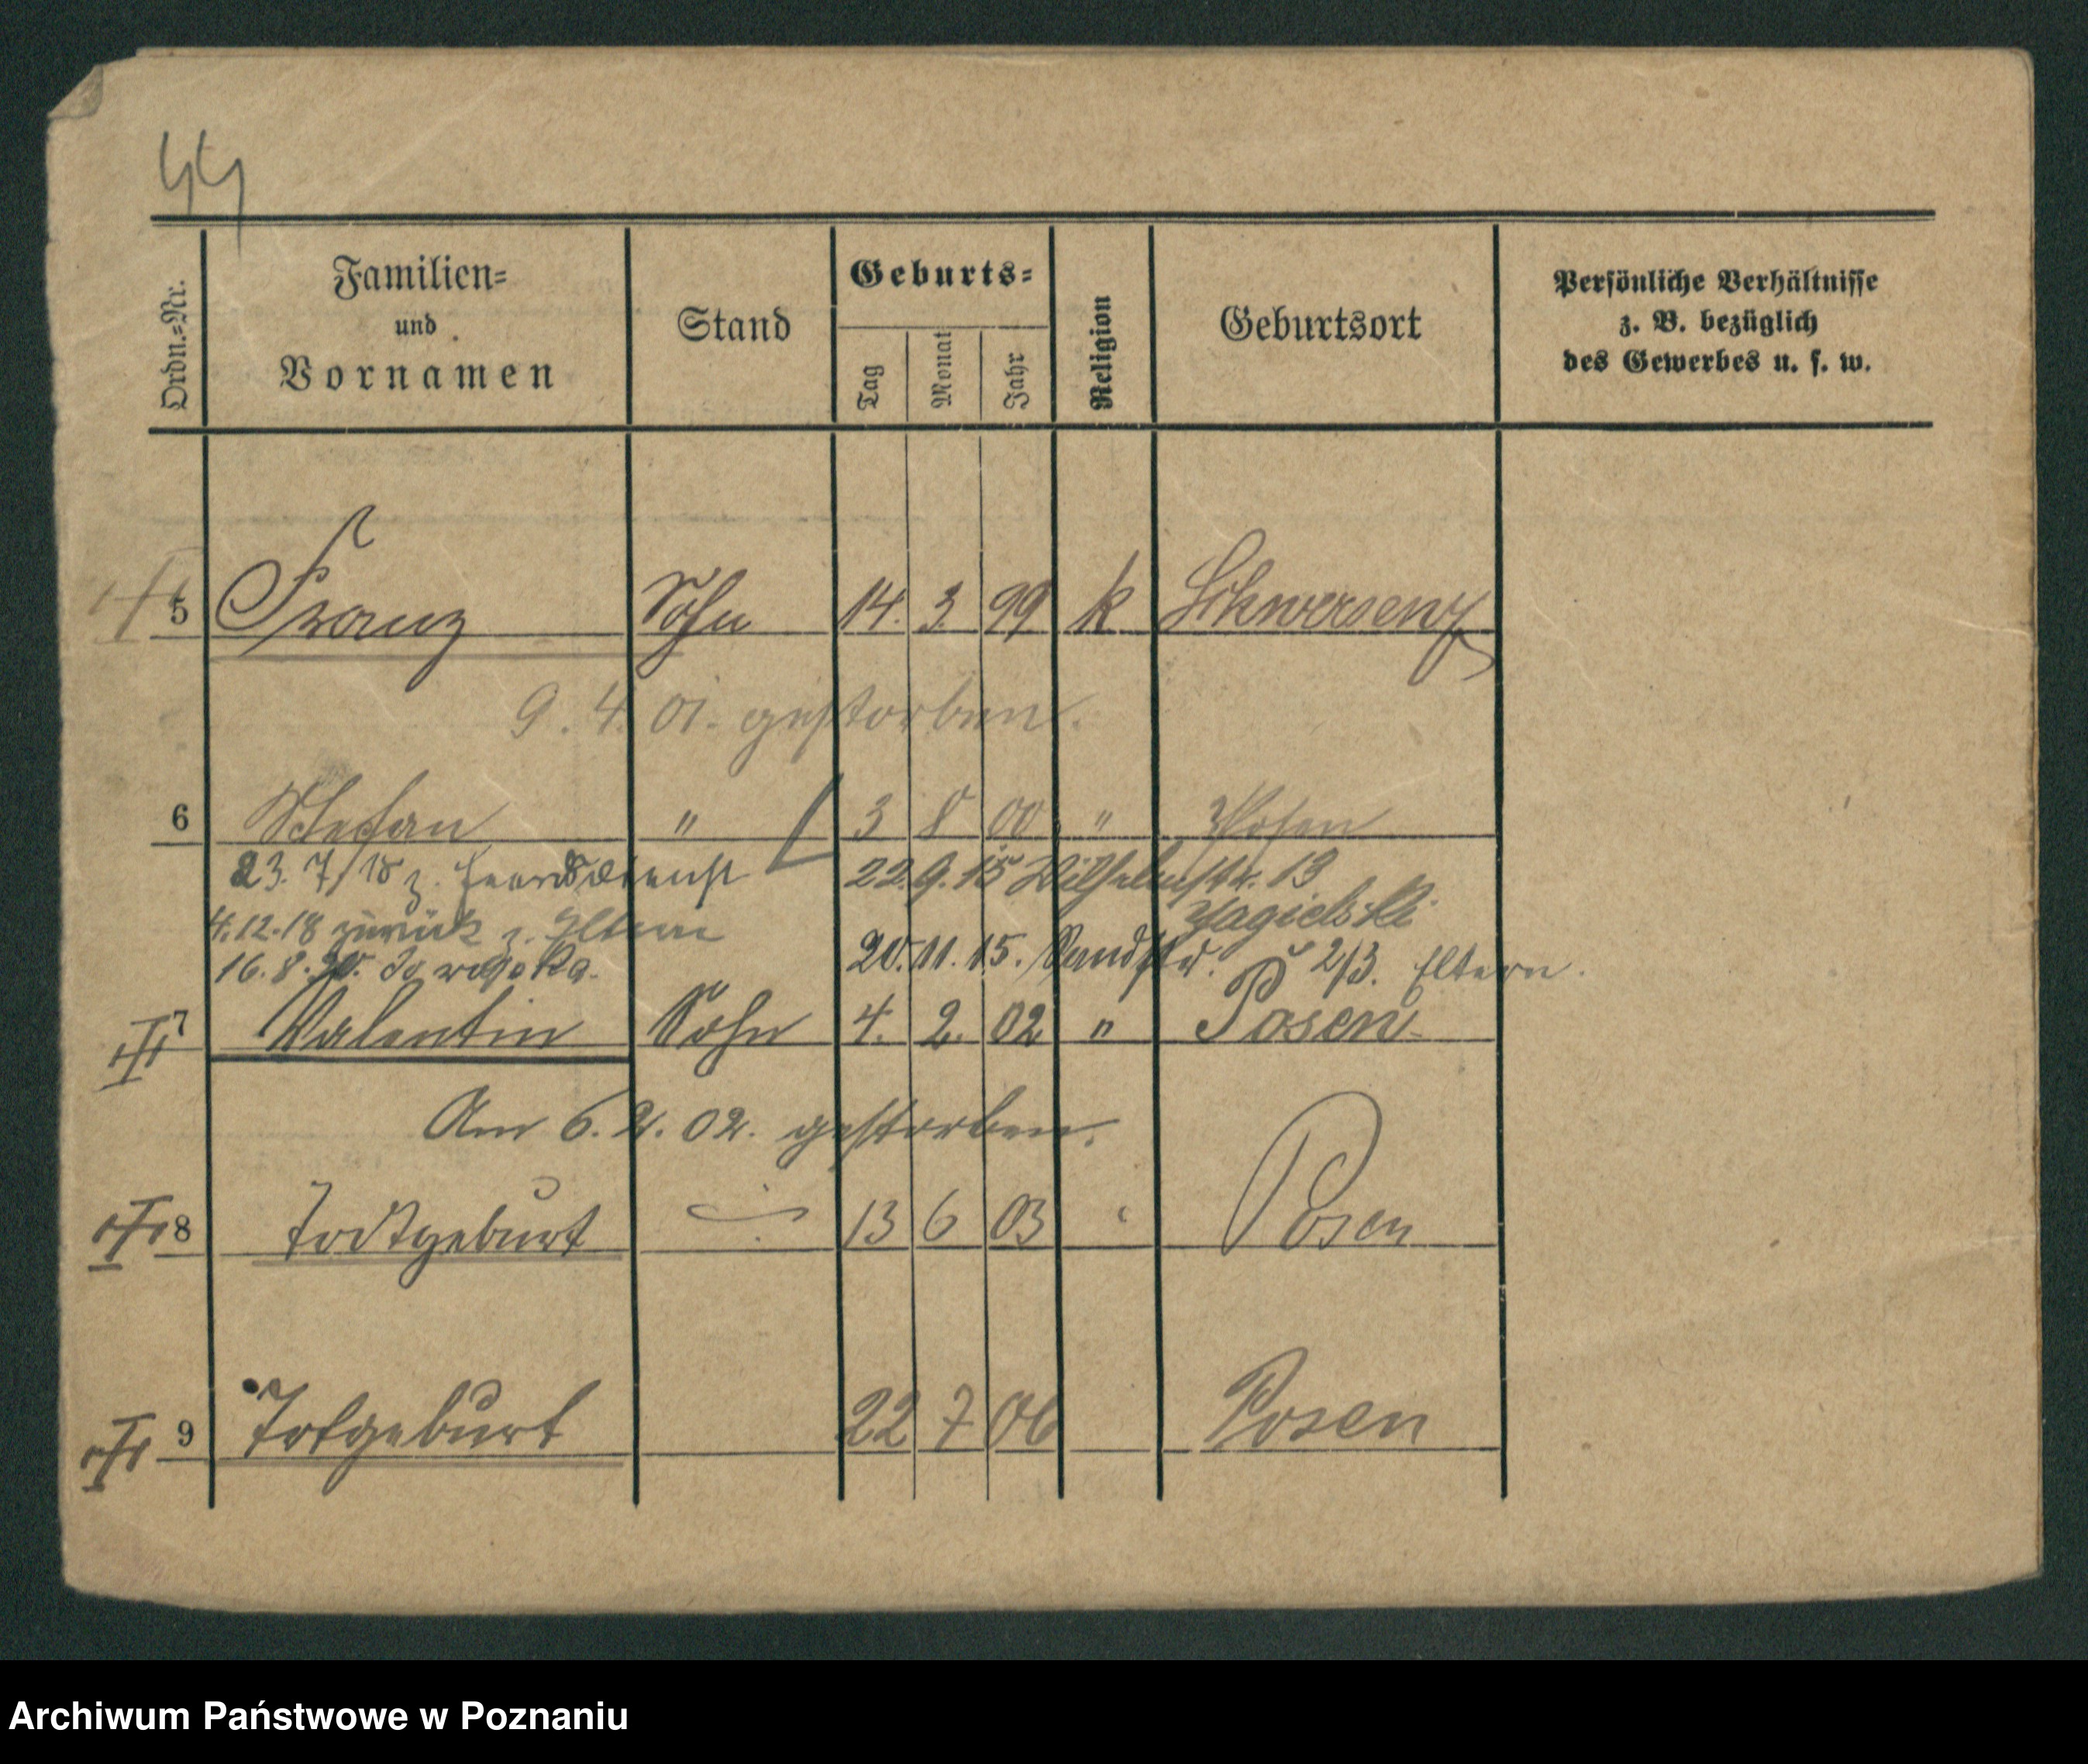 44
Ordn.-Nr. Familien- und Vornamen Stand Geburts- Tag Monat Jahr Religion Geburtsort Persönliche Verhältnisse z. B. bezüglich des Gewerbes u. s. w.
5 Franz Sohn 14. 3. 99 k Schwersenz
9. 4. 01. gestorben.
6 Stefan " 3 8 00 " Posen
23. 7/18 z. 22.9.15 Wilhelmstr. 13
Jagielski
4.12.18 zurück z. Eltern
20.11.15. Sandstr. 2/3. Eltern.
16.8.20.
7 Valentin Sohn 4. 2. 02 " Posen
Am 6. 2. 02. gestorben.
8 Todtgeburt 13 6 03 Posen
9 Totgeburt 22 7 06 Posen
Archiwum Państwowe w Poznaniu